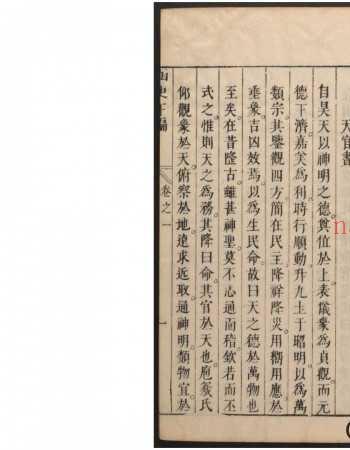 天官書
自昊天以神明之德奠位於上表儀象為貞觀而元
德下濟嘉美為利時行順動升九土于昭明以為萬
類宗其鑒觀四方簡在民主降祥降災用嚮用應於
垂象吉凶效焉以為生民命故曰天之德於萬物也
至矣在昔隆古雖甚神聖莫不心通而稽欽若而丕
式之惟則天之為務其降曰命其官於天也庖羲氏
仰觀象於天俯察於地遠求近取通神明類物宜於
史 編
卷之一
一